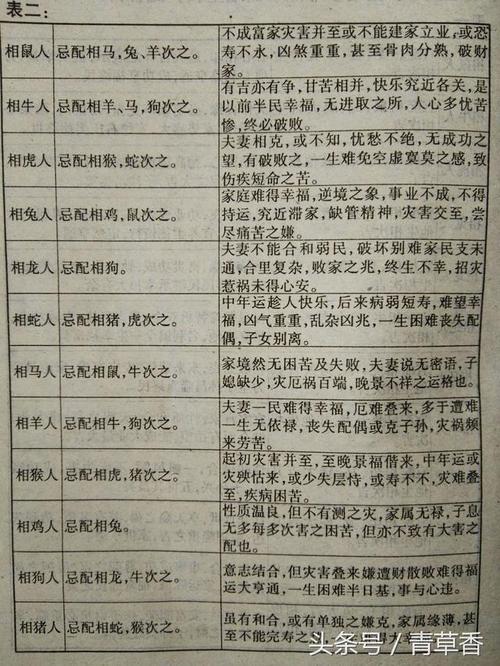 表二：
相鼠人 忌配相马，兔、羊次之。 不成富家灾害并至或不能建家立业，或恐
寿不永，凶煞重重，甚至骨肉分熟，破财
家。
相牛人 忌配相羊、马，狗次之。 有吉亦有争，甘苦相并，快乐究近各关，是
以前半民幸福，无进取之所，人心多忧苦
惨，终必破败。
相虎人 忌配相猴，蛇次之。 夫妻相克，或不知，忧愁不绝，无成功之
望，有破败之，一生难免空虚寞莫之感，致
伤疾短命之苦。
相兔人 忌配相鸡，鼠次之。 家庭难得幸福，逆境之象，事业不成，不得
持运，究近滞家，缺管精神，灾害交至，尝
尽痛苦之嫌。
相龙人 忌配相狗。 夫妻不能合和弱民，破坏别难家民支未
通，合里复杂，败家之兆，终生不幸，招灾
惹祸未得心安。
相蛇人 忌配相猪，虎次之。 中年运趁人快乐，后来病弱短寿，难望幸
福，凶气重重，乱杂凶兆，一生困难丧失配
偶，子女别离。
相马人 忌配相鼠，牛次之。 家境然无困苦及失败，夫妻说无密语，子
媳缺少，灾厄祸百端，晚景不祥之运格也。
相羊人 忌配相牛，狗次之。 夫妻一民难得幸福，厄难叠来，多于遭难
一生无依禄，丧失配偶或克子孙，灾祸频
来劳苦。
相猴人 忌配相虎，猪次之。 起初灾害并至，至晚景福偕来，中年运或
灾殃怙来，或少失层恃，或寿不不，灾难叠
至，疾病困苦。
相鸡人 忌配相兔。 性质温良，但不有测之灾，家属无禄，子息
无多每多次害之困苦，但亦不致有大害之
配也。
相狗人 忌配相龙，牛次之。 意志结合，但灾害叠来嫌遭财散败难得福
运大亨通，一生困难半日基，事与心违。
相猪人 忌配相蛇，猴次之。 虽有和合，或有单独之嫌克，家属缘薄，甚
至不能完寿之
头条号／青草香